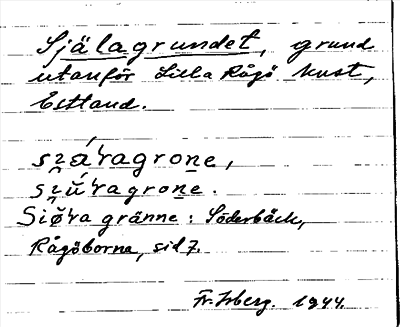 Själagrundet, grund
utanför Lilla Rågö kust,
Estland.
sz̯áʹragrone,
sz̯ŭ́ʹragrone.
Siø̆ra gränne: Söderbäck,
Rågöborna, sid 7.
Fr. Isberg. 1944.